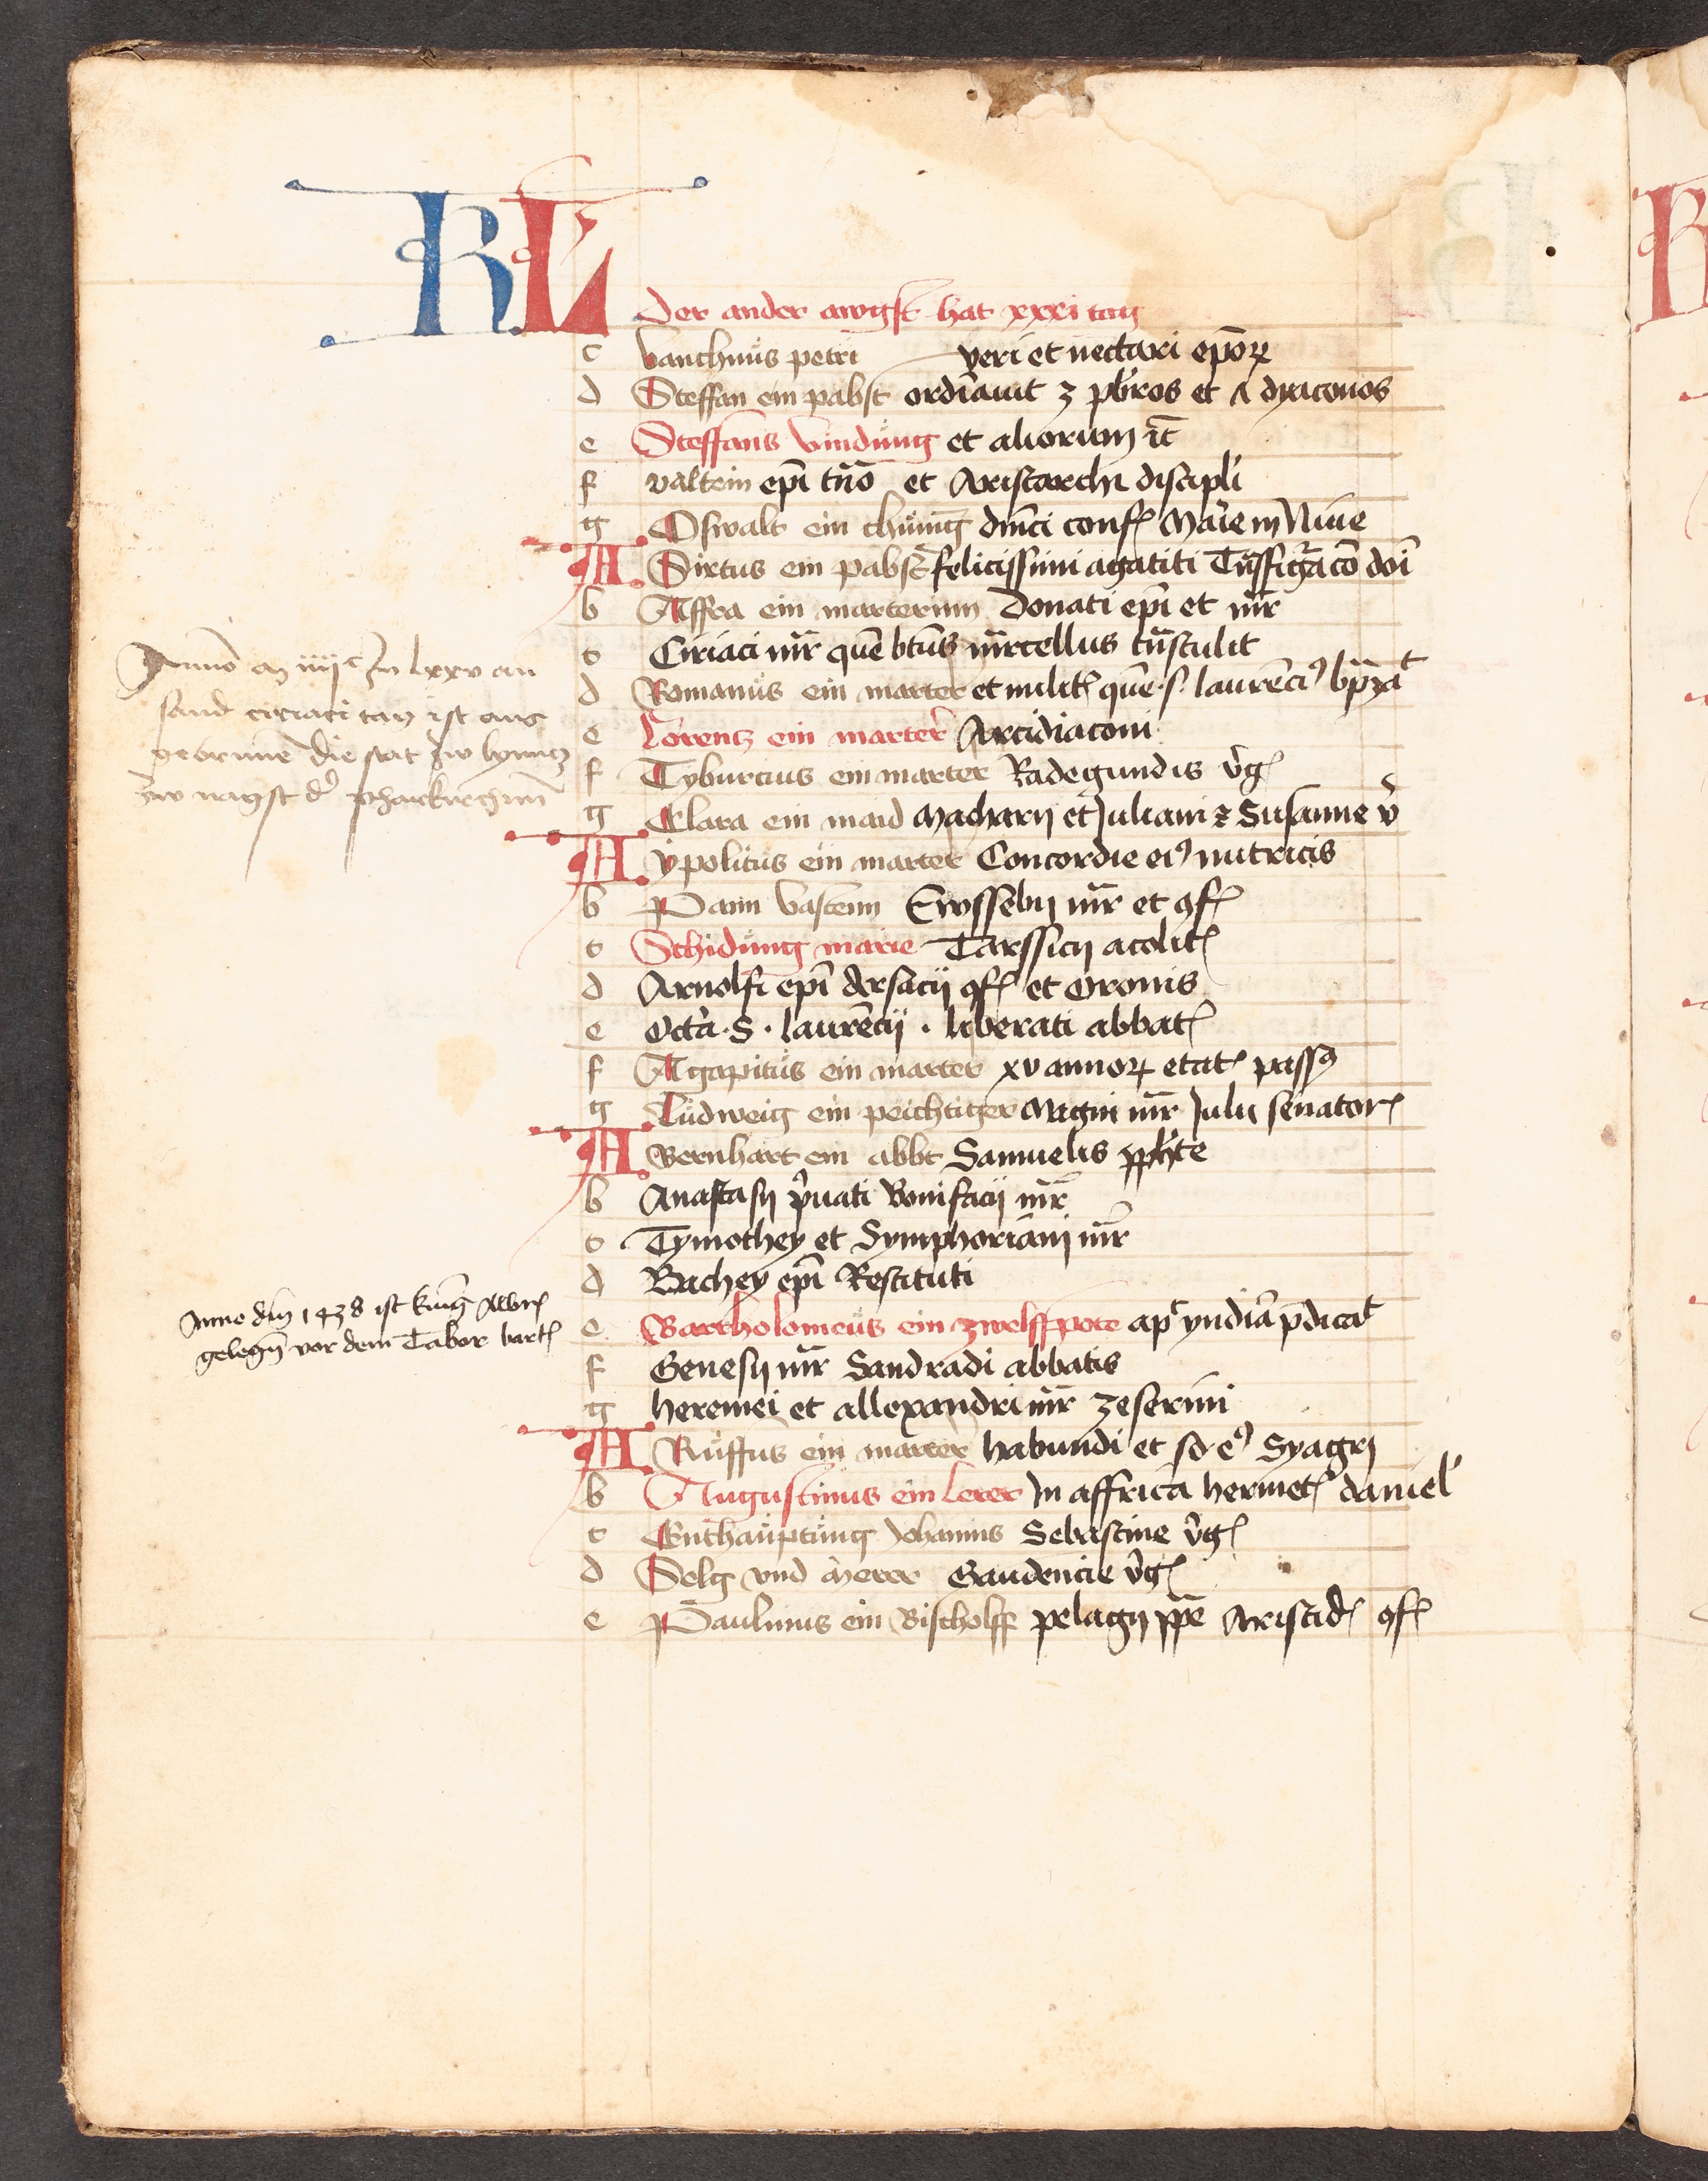 KL
Der ander awgst hat xxxi tag
c vanchnus petri veri et nectari epōꝝ
d Steffan ein pabst ordīauit 3 pbr̄os et ʌ dyaconos
e Steffans vindung et aliorum
f valtein ep̄i et Aristarchi discipli
g Oswalt ein chunig dm̄ci conf Mar̄ie in Niue
A Sixtus ein pabst felicissimi agatiti Tn̄sfigr̄acō dn̄i
b Affra ein marterinn Donati ep̄i et mr̄
c Ciriaci mr̄ quē btūs mr̄cellus tn̄stulit
d Romanus ein marter et milit quē .s. laurēci9 bp̄zat
e Lorentz ein marter Arcidiaconi
f Tyburcius ein marter Radegundis v̄g
g Clara ein maid Macharij et Juliani z Susanne v̄
A ypolitus ein marter Concordie ei9 nutricis
b Vnn vastenn Ewssebij mr̄ et 9f
c Schidung marie Tarssicij acolit
d Arnolfi ep̄i dersacij 9f et Oronis
e Octā .S. laurēcij . liberati abbat
f Agapitus ein marter xv annoꝝ etat pass9
g Ludweig ein peichtiger Magni mr̄ Julij senator
A Bernhart ein abbt Samuelis pph̄te
b Anastasij p̄uati Bonifacij mr̄
c Tymothey et Symphoriani mr̄
d Bachey ep̄i Restituti
e Bartholomeus ein zwelffpote ap yndiā p̄dicat
f Genesij mr̄ Sandradi abbatis
g heremei et allexandri mr̄ zeserini
A Ruffus ein marter habundi et so e9 Syagrj
b Augustinus ein lerer In affrica hermet daniel
c Enthauptung Johannis Sebastine v̄g
d Selg vnd merer Gaudencie v̄g
e Paulinus ein Bischolff pelagij Aristid 9f
Anno m iiijᶜ Jn lxxv an
sand ciriaci tag ist aus
geprunē die stat zw lynntz
zw nagst dʼ pharkirchnn
Anno dnj 1438 ist kunig Albr
gelegn vor dem Tabor bart